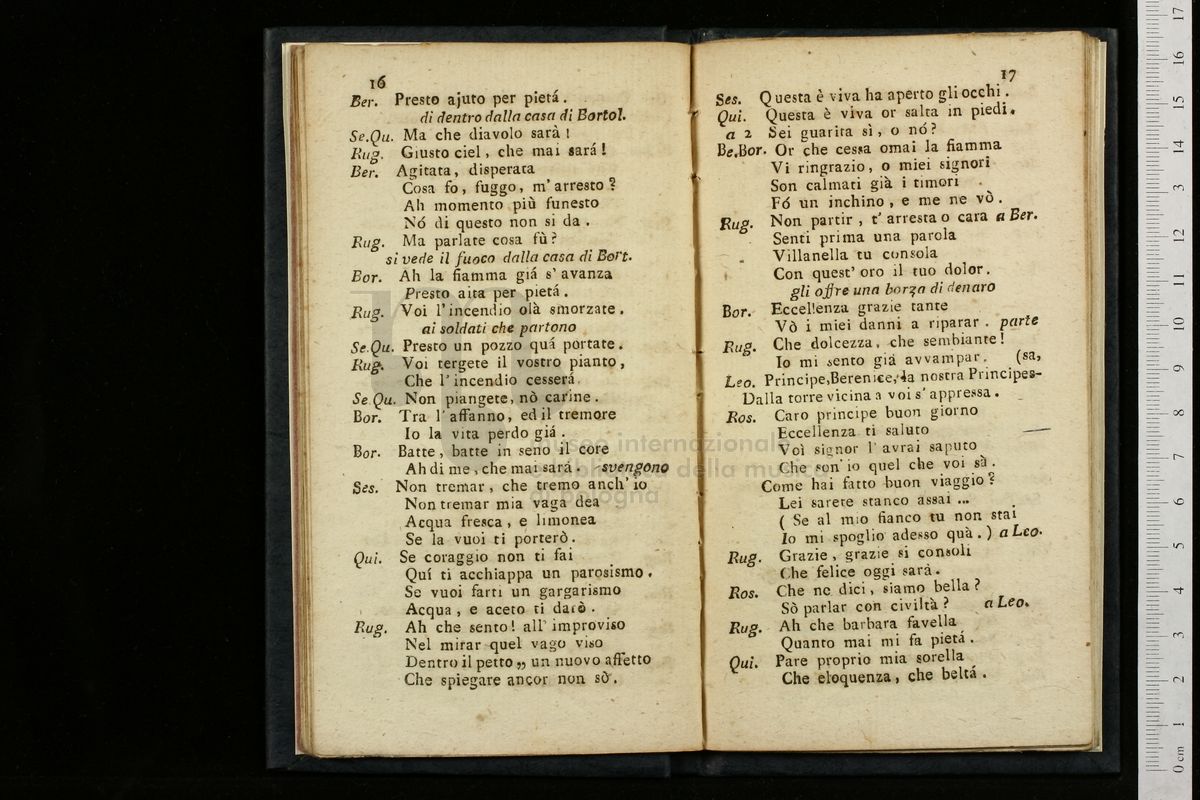 16
Ber. Presto ajuto per pietá.
di dentro dalla casa di Bortol.
Se.Qu. Ma che diavolo sarà!
Rug. Giusto ciel, che mai sará!
Ber. Agitata, disperata
Cosa fo, fuggo, m'arresto?
Ah momento più funesto
Nó di questo non si da.
Rug. Ma parlate cosa fù?
si vede il fuoco dalla casa di Bort.
Bor. Ah la fiamma giá s'avanza
Presto aita per pietá.
Rug. Voi l'incendio olà smorzate.
ai soldati che partono
Se.Qu. Presto un pozzo quá portate.
Rug. Voi tergete il vostro pianto,
Che l'incendio cesserá.
Se Qu. Non piangete, nò carine.
Bor. Tra l'affanno, ed il tremore
Io la vita perdo giá.
Bor. Batte, batte in seno il core
Ah di me, che mai sará. svengono
Ses. Non tremar, che tremo anch'io
Non tremar mia vaga dea
Acqua fresca, e limonea
Se la vuoi ti porterò.
Qui. Se coraggio non ti fai
Quí ti acchiappa un parosismo.
Se vuoi farti un gargarismo
Acqua, e aceto ti darò.
Rug. Ah che sento! all'improviso
Nel mirar quel vago viso
Dentro il petto „ un nuovo affetto
Che spiegare ancor non sò.
17
Ses. Questa è viva ha aperto gli occhi.
Qui. Questa è viva or salta in piedi.
a 2 Sei guarita sì, o nó?
Be.Bor. Or che cessa omai la fiamma
Vi ringrazio, o miei signori
Son calmati già i timori
Fó un inchino, e me ne vò.
Rug. Non partir, t'arresta o cara a Ber.
Senti prima una parola
Villanella tu consola
Con quest'oro il tuo dolor.
gli offre una borza di denaro
Bor. Eccellenza grazie tante
Vò i miei danni a riparar. parte
Rug. Che dolcezza, che sembiante!
Io mi sento giá avvampar. (sa,
Leo. Principe, Berenice, la nostra Principes-
Dalla torre vicina a voi s'appressa.
Ros. Caro principe buon giorno
Eccellenza ti saluto
Voi signor l'avrai saputo
Che son'io quel che voi sà.
Come hai fatto buon viaggio?
Lei sarete stanco assai ...
( Se al mio fianco tu non stai
Io mi spoglio adesso quà.) a Leo.
Rug. Grazie, grazie si consoli
Che felice oggi sará.
Ros. Che ne dici, siamo bella?
Sò parlar con civiltà? a Leo.
Rug. Ah che barbara favella
Quanto mai mi fa pietá.
Qui. Pare proprio mia sorella
Che eloquenza, che beltá.
museo internazionale
e biblioteca della musica
di bologna
0 cm 1 2 3 4 5 6 7 8 9 10 11 12 13 14 15 16 17